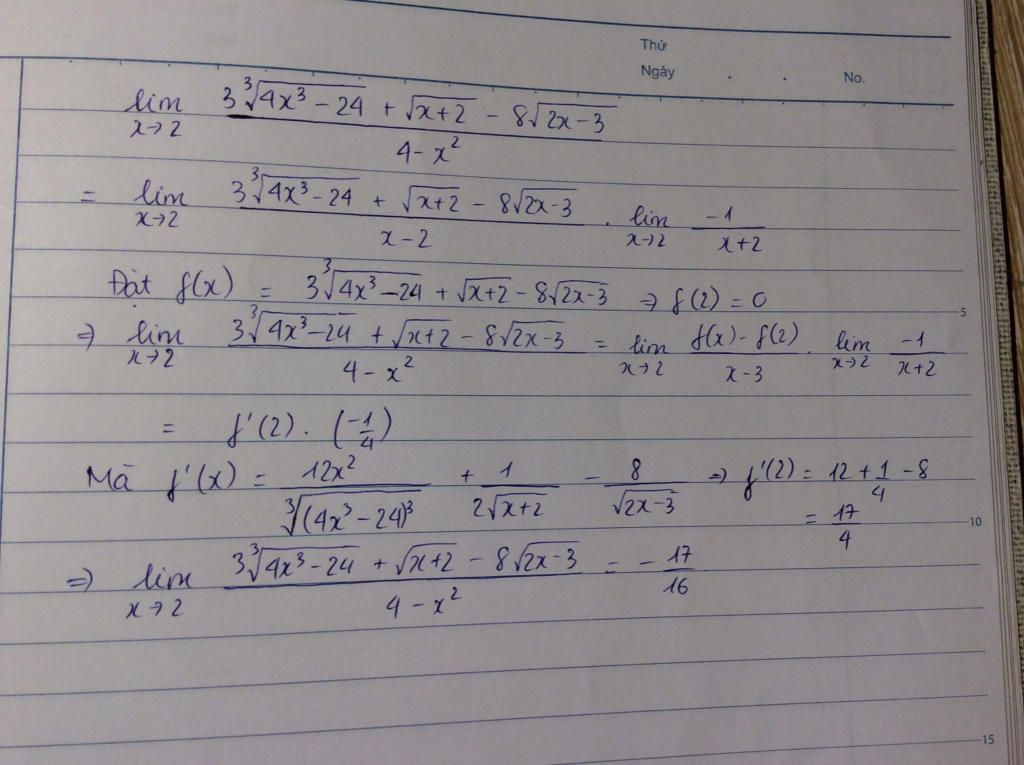 Thứ
Ngày . . No.
lim x→2 (3∛(4x³ − 24) + √(x+2) − 8√(2x−3)) / (4 − x²)
= lim x→2 (3∛(4x³ − 24) + √(x+2) − 8√(2x−3)) / (x − 2) . lim x→2 (−1)/(x+2)
Đặt f(x) = 3∛(4x³ − 24) + √(x+2) − 8√(2x−3) ⇒ f(2) = 0
5
⇒ lim x→2 (3∛(4x³ − 24) + √(x+2) − 8√(2x−3)) / (4 − x²) = lim x→2 (f(x) − f(2)) / (x − 3) . lim x→2 (−1)/(x+2)
= f'(2) . (−1/4)
Mà f'(x) = 12x² / ∛((4x³ − 24)³) + 1 / (2√(x+2)) − 8 / √(2x−3) ⇒ f'(2) = 12 + 1/4 − 8
= 17/4
10
⇒ lim x→2 (3∛(4x³ − 24) + √(x+2) − 8√(2x−3)) / (4 − x²) = − 17/16
15